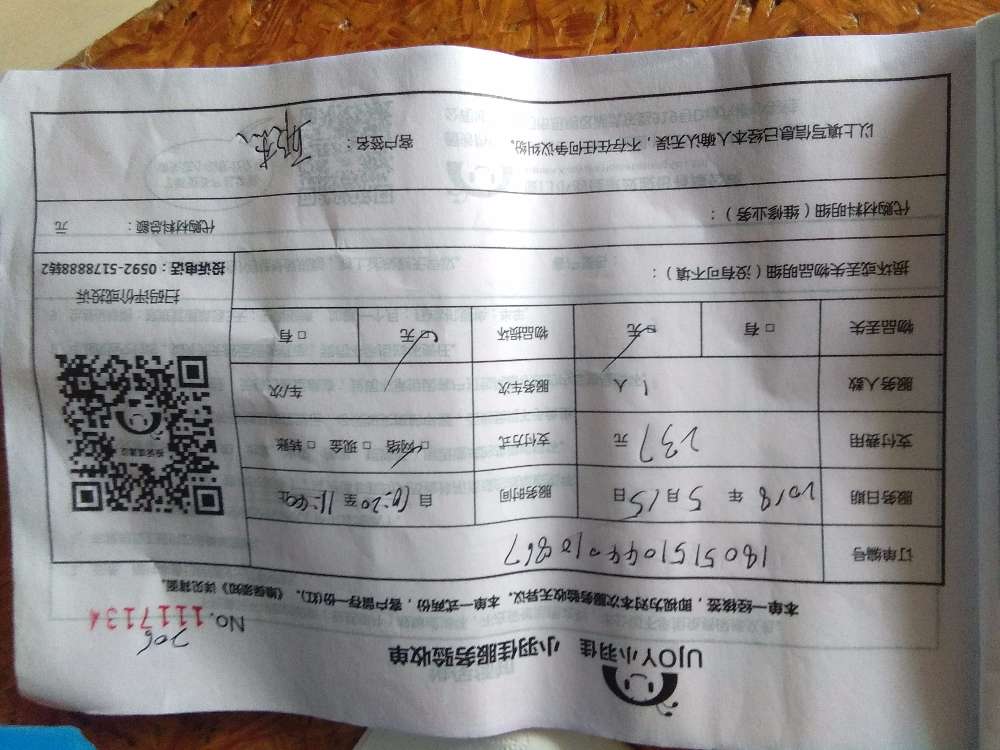 UJOY小羽佳 小羽佳服务验收单
206
No.1117134
本单一经核签，即视为对本次服务验收无异议。本单一式两份，客户留存一份(红)。《维保须知》详见背面。
订单编号 180515104401010867
服务日期 2018 年 5 月 15 日 服务时间 自 10:20 至 11:40止
支付费用 237 元 支付方式 □网络 □ 现金 □ 转账
服务人数 1 人 服务车次 车/次
物品丢失 □ 有 □无 物品损坏 □无 □ 有
损坏或丢失物品明细（没有可不填）：
投诉建议
扫码评价或投诉
投诉电话：0592-5178888转2
代购材料明细（维修业务）： 代购材料总额： 元
以上填写信息已经本人确认无误，不存在任何争议纠纷。 客户签名：